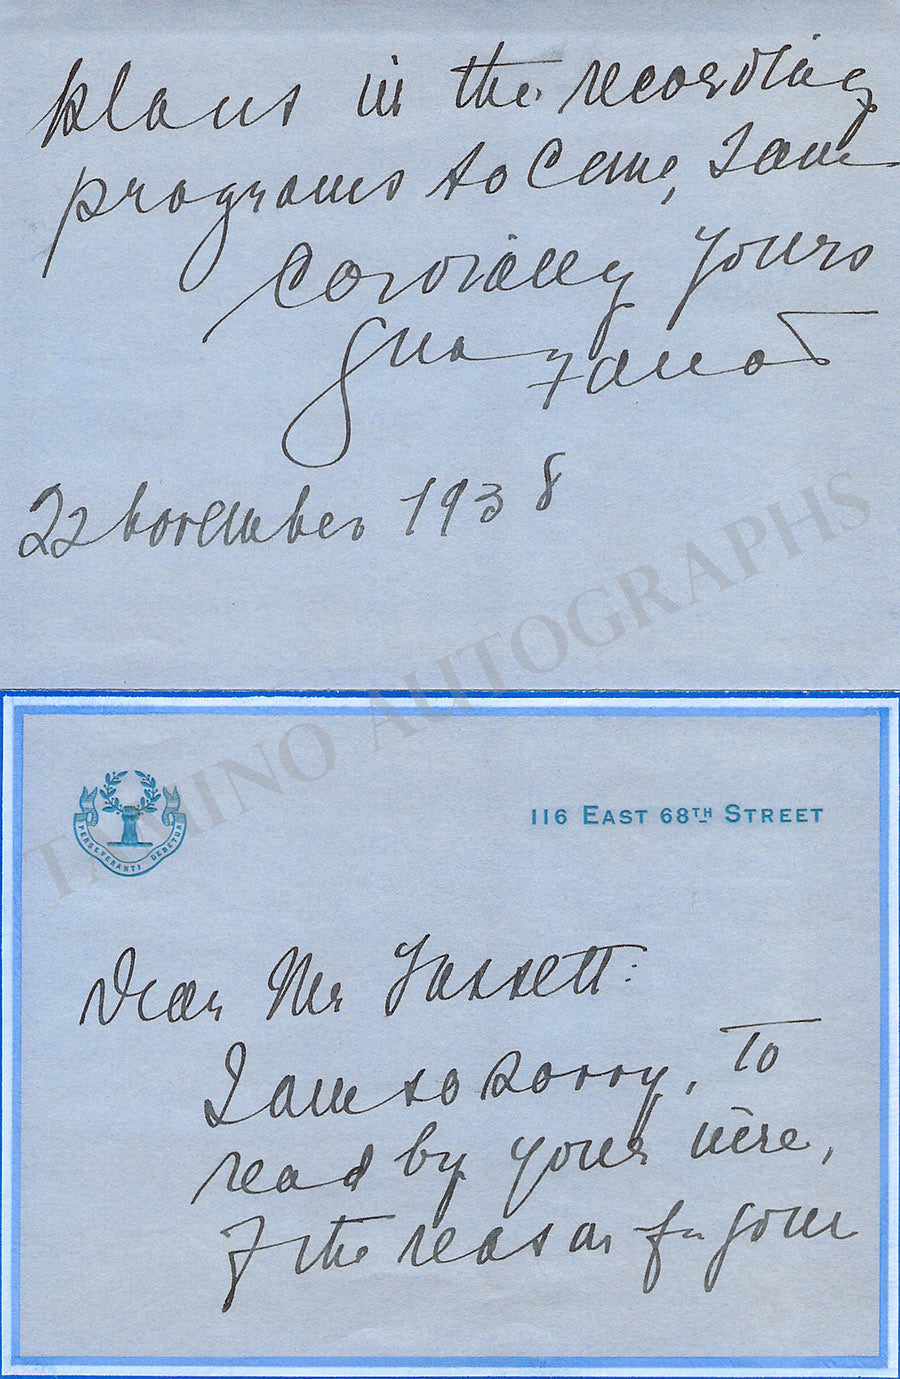 plans in the recording
programs to come, I am
Cordially yours
22 November 1938
TAMINO AUTOGRAPHS
PERSEVERANTI DEBETUR
116 EAST 68TH STREET
Dear Mr Fassett:
I am so sorry, to
read by your wire,
of the reason for your